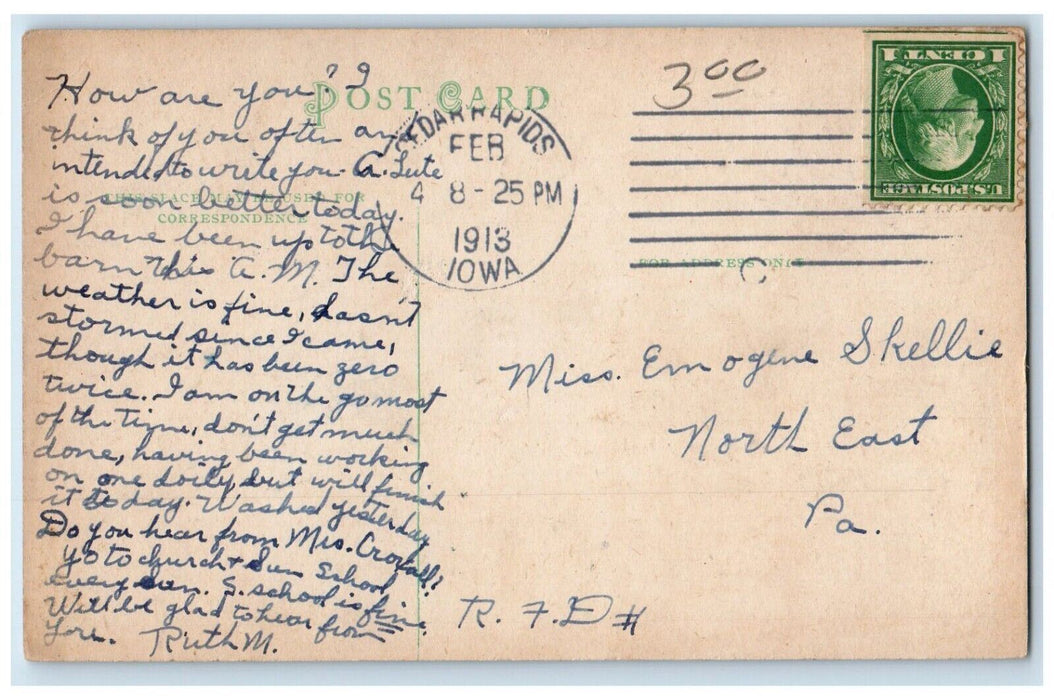 How are you? I
think of you often and
intended to write you. A. Lute
is soon better today.
I have been up to the
barn this A.M. The
weather is fine, hasn't
stormed since I came,
though it has been zero
twice. I am on the go most
of the time, don't get much
done, having been working
on one doily but will finish
it today. Washed yesterday
Do you hear from Mrs.
go to church & Sun School
every sun. S. school is fine.
Will be glad to hear from
you. Ruth M.
POST CARD
THIS SPACE MAY BE USED FOR
CORRESPONDENCE
CEDAR RAPIDS
FEB
4 8-25 PM
1913
IOWA
3 00
1 CENT 1
U.S. POSTAGE
FOR ADDRESS ONLY
Miss. Emogene Skellie
North East
Pa.
R. F. D #